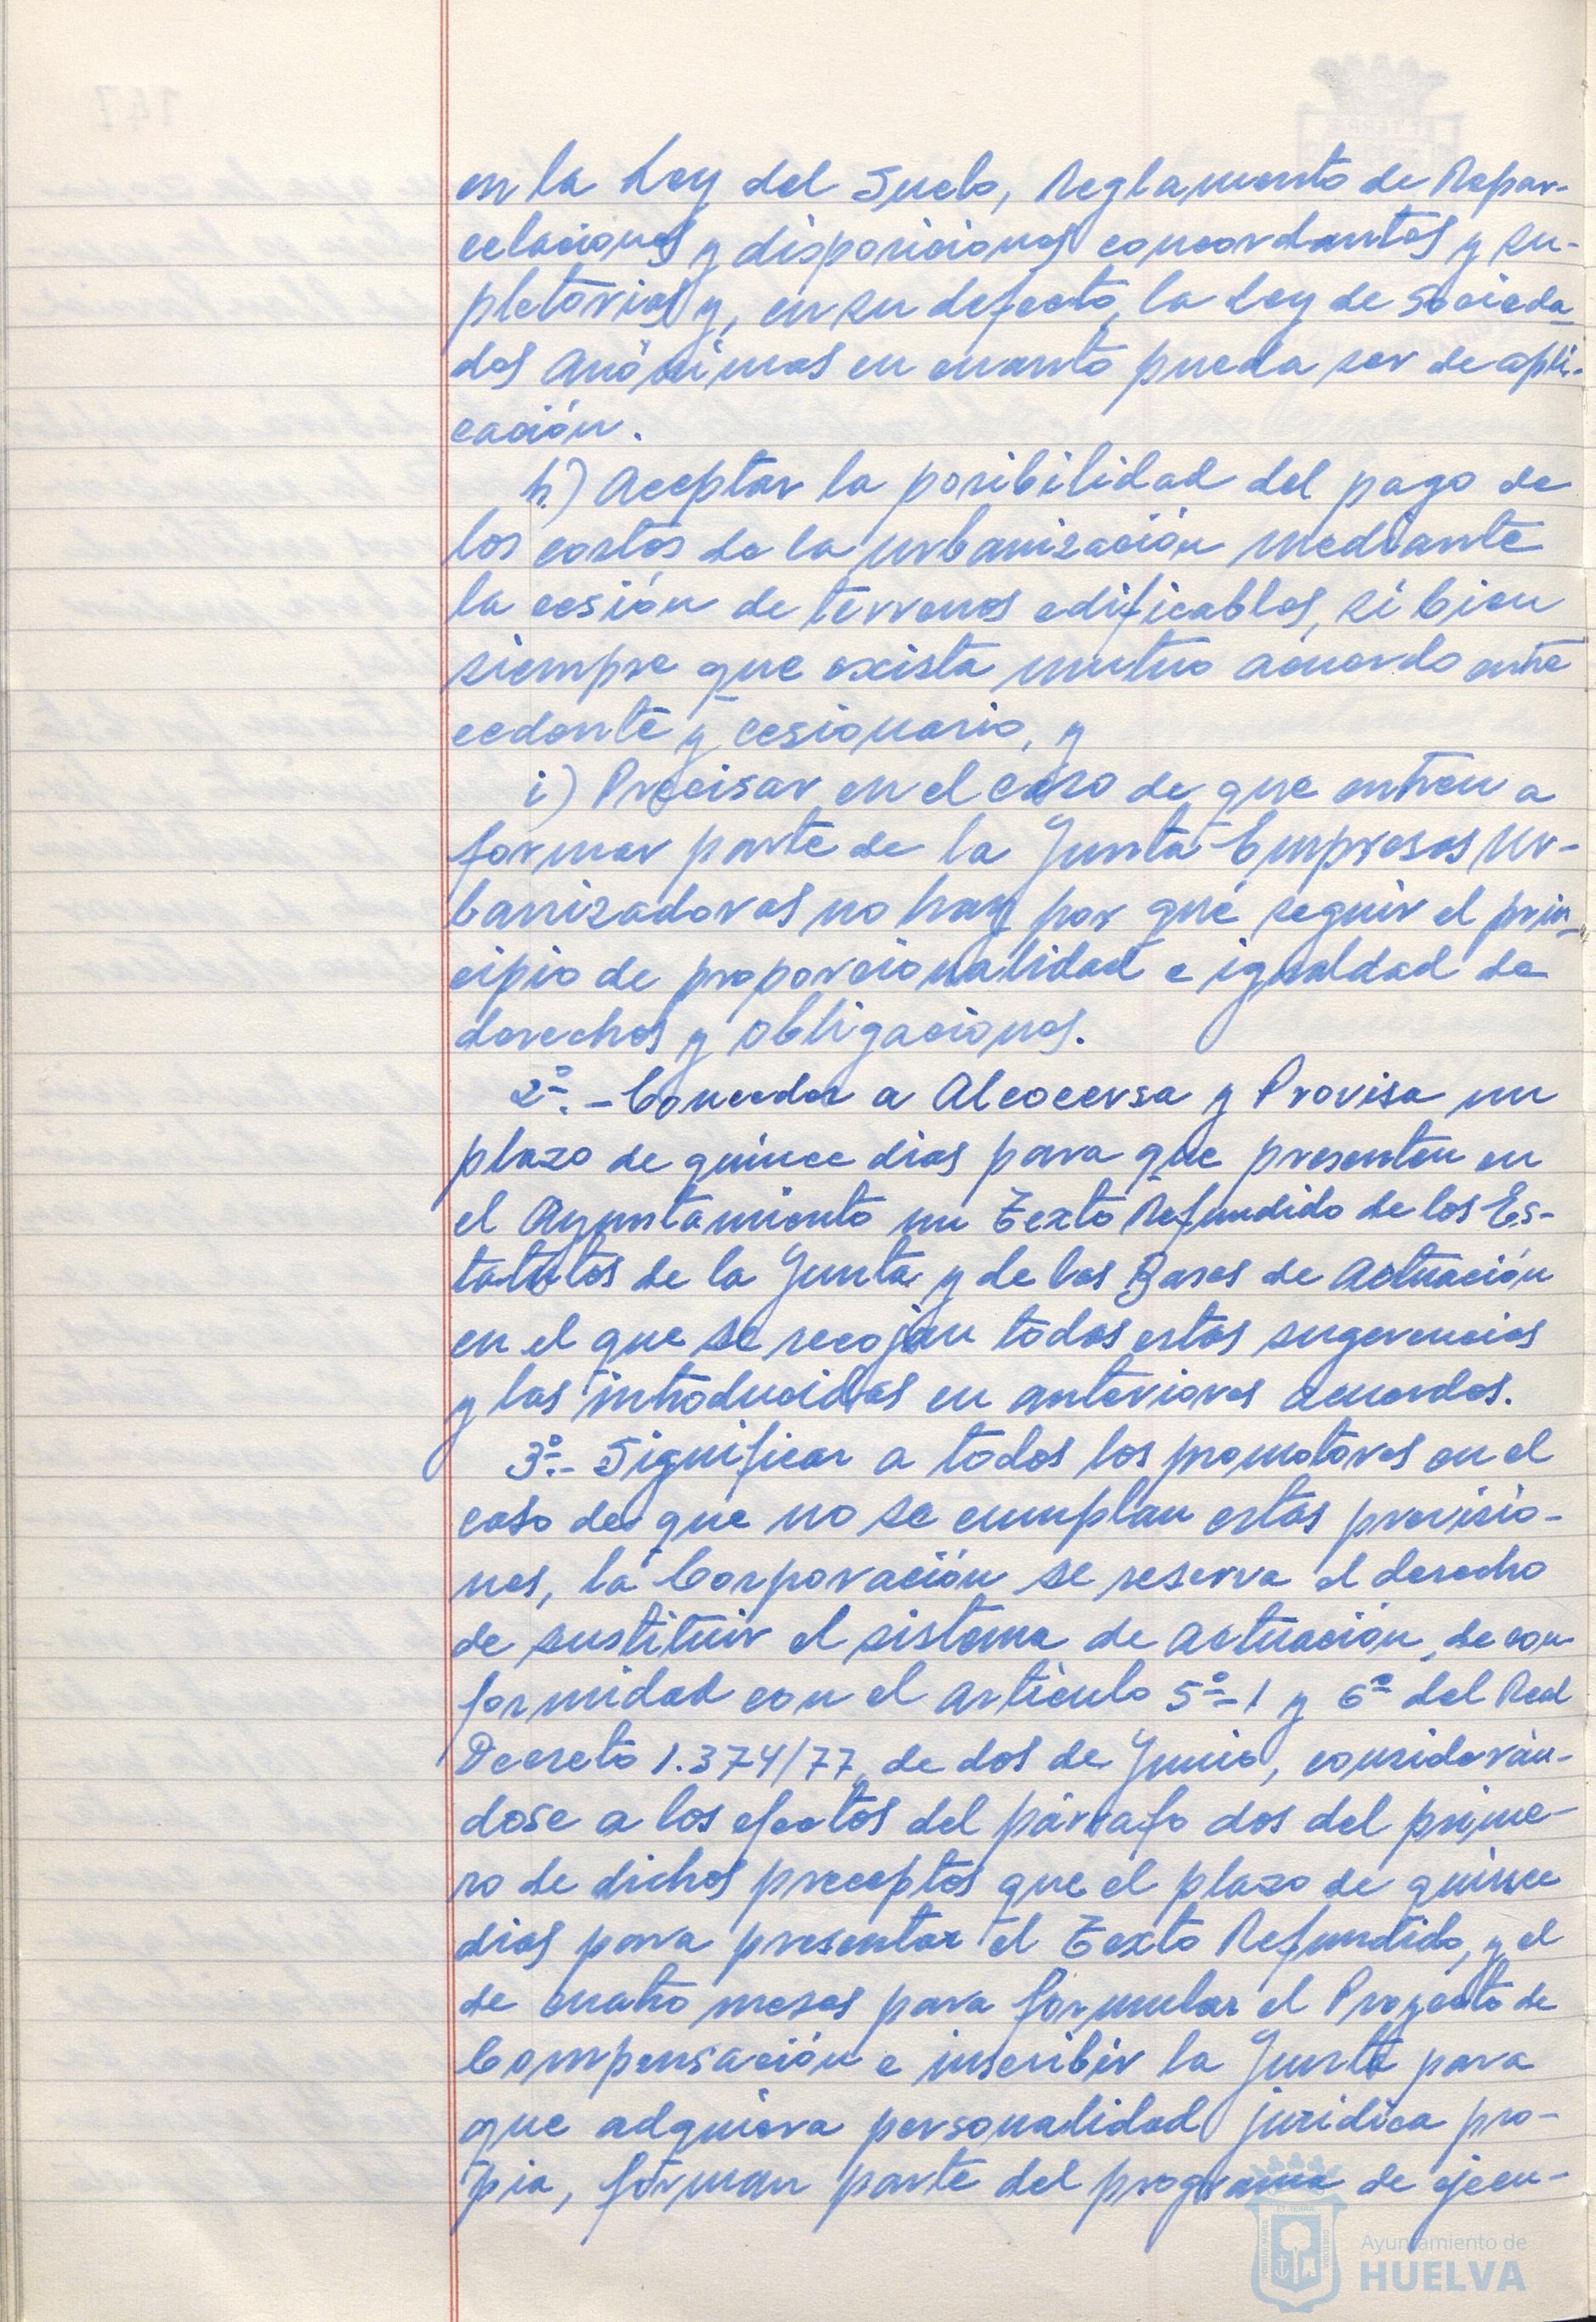 en la Ley del Suelo, Reglamento de Repar-
celaciones y disposiciones concordantes y su-
pletorias y, en su defecto, la Ley de Socieda-
des Anónimas en cuanto pueda ser de apli-
cación.
h) Aceptar la posibilidad del pago de
los costes de la urbanización mediante
la cesión de terrenos edificables, si bien
siempre que exista mutuo acuerdo entre
cedente y cesionario, y
i) Precisar en el caso de que entren a
formar parte de la Junta Empresas Ur-
banizadoras no hay por qué seguir el prin-
cipio de proporcionalidad e igualdad de
derechos y obligaciones.
2º.- Conceder a Alcocersa y Provisa un
plazo de quince dias para que presenten en
el Ayuntamiento un Texto Refundido de los Es-
tatutos de la Junta y de las Bases de Actuación
en el que se recojan todas estas sugerencias
y las introducidas en anteriores acuerdos.
3º.- Significar a todos los promotores en el
caso de que no se cumplan estas previsio-
nes, la Corporación se reserva el derecho
de sustituir el sistema de actuación, de con
formidad con el artículo 5º-1 y 6º del Real
Decreto 1.374/77, de dos de Junio, considerán-
dose a los efectos del párrafo dos del prime-
ro de dichos preceptos que el plazo de quince
dias para presentar el Texto Refundido, y el
de cuatro meses para formular el Proyecto de
Compensación e inscribir la Junta para
que adquiera personalidad jurídica pro-
pia, forman parte del programa de ejecu-
Ayuntamiento de
HUELVA